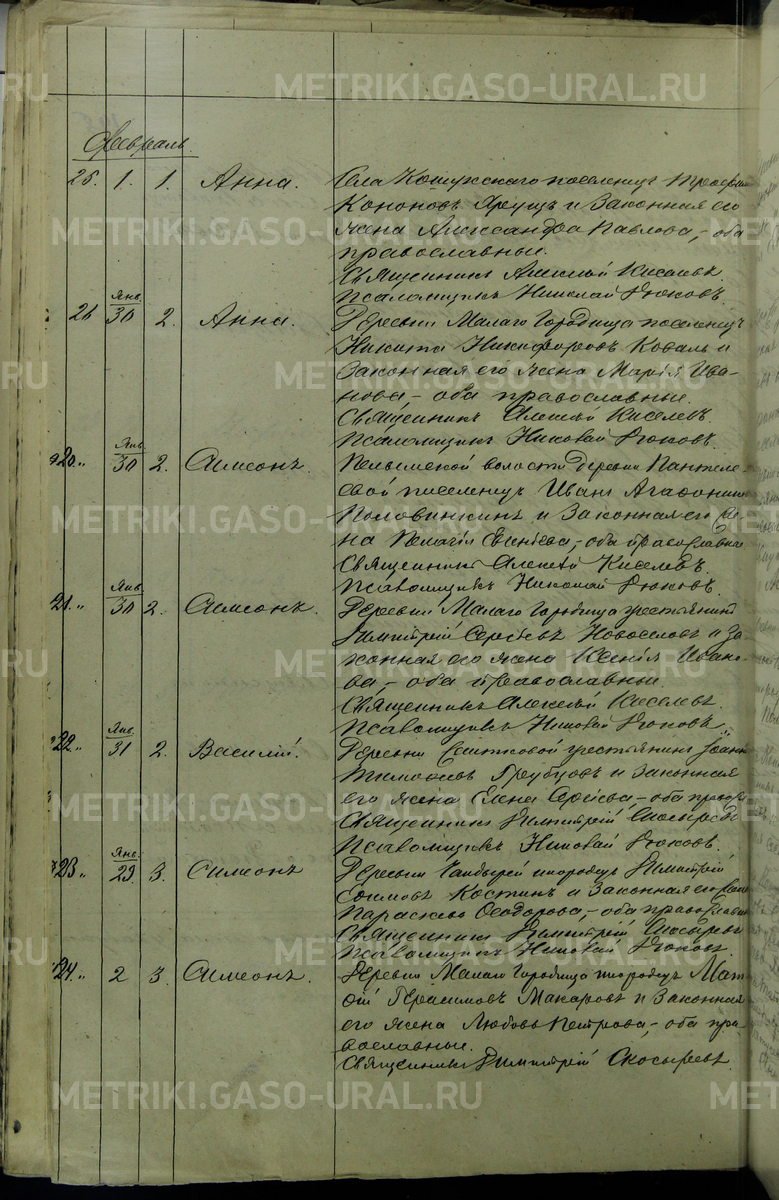 METRIKI.GASO-URAL.RU
Февраль.
25. 1. 1. Анна. Села Кошукскаго поселенец
Кононовъ Яреуцъ и законная его
жена Александра Павлова,- оба
православные.
Священникъ Алексѣй Киселевъ
Псаломщикъ Николай Рюковъ.
26 Янв. 30 2. Анна. Деревни Малаго Городища поселенецъ
Никита Никифоровъ Коваль и
законная его жена Марія Ива-
нова,- оба православные.
Священникъ Алексѣй Киселевъ.
Псаломщикъ Николай Рюковъ.
20. " Янв. 30 2. Симеонъ. Пелымской волости деревни Пантеле-
евой поселенецъ Иванъ Агафоновъ
Половинкинъ и законная его же
на Пелагія Евгніева,- оба православные
Священникъ Алексѣй Киселевъ.
Псаломщикъ Николай Рюковъ.
21. " Янв. 30 2. Симеонъ. Деревни Малаго Городища крестьянинъ
Димитрій Сергѣевъ Новоселовъ и за-
конная его жена Ксенія Ивано-
ва,- оба православные.
Священникъ Алексѣй Киселевъ.
Псаломщикъ Николай Рюковъ.
22. " Янв. 31 2. Василій. Деревни крестьянинъ Іоаннъ
Тимофѣевъ и законная
его жена Елена Сергѣева,- оба правос
Священникъ Димитрій Скосыревъ
Псаломщикъ Николай Рюковъ.
23. " Янв. 29. 3. Симеонъ Деревни инородецъ Димитрій
Ефимовъ Костинъ и законная его жена
Параскева Ѳеодорова,- оба православные
Священникъ Димитрій Скосыревъ
Псаломщикъ Николай Рюковъ.
24. " 2 3. Симеонъ. Деревни Малаго Городища инородецъ Мат
ѳѣй Герасимовъ Макаровъ и законная
его жена Любовь Петрова,- оба пра-
вославные.
Священникъ Димитрій Скосыревъ.